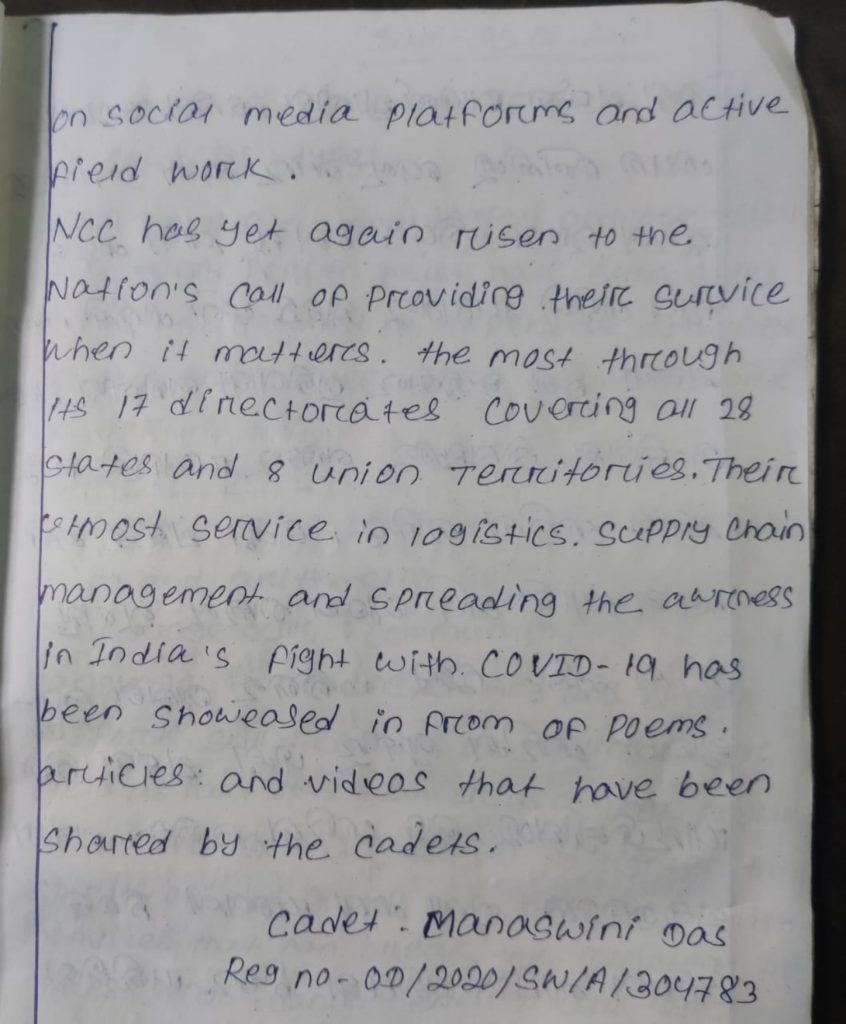 on social media platforms and active
field work.
NCC has yet again risen to the
Nation's call of providing their survice
when it matters. the most through
Its 17 directorates covering all 28
states and 8 union Territories. Their
utmost service in logistics. supply chain
management and spreading the awrness
in India's fight with. COVID-19 has
been showeased in from of poems.
articles: and videos that have been
shared by the cadets.
Cadet : Manaswini Das
Reg no - OD/2020/SW/A/304783